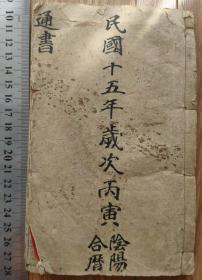 通書
民國十五年歲次丙寅
陰陽
合曆